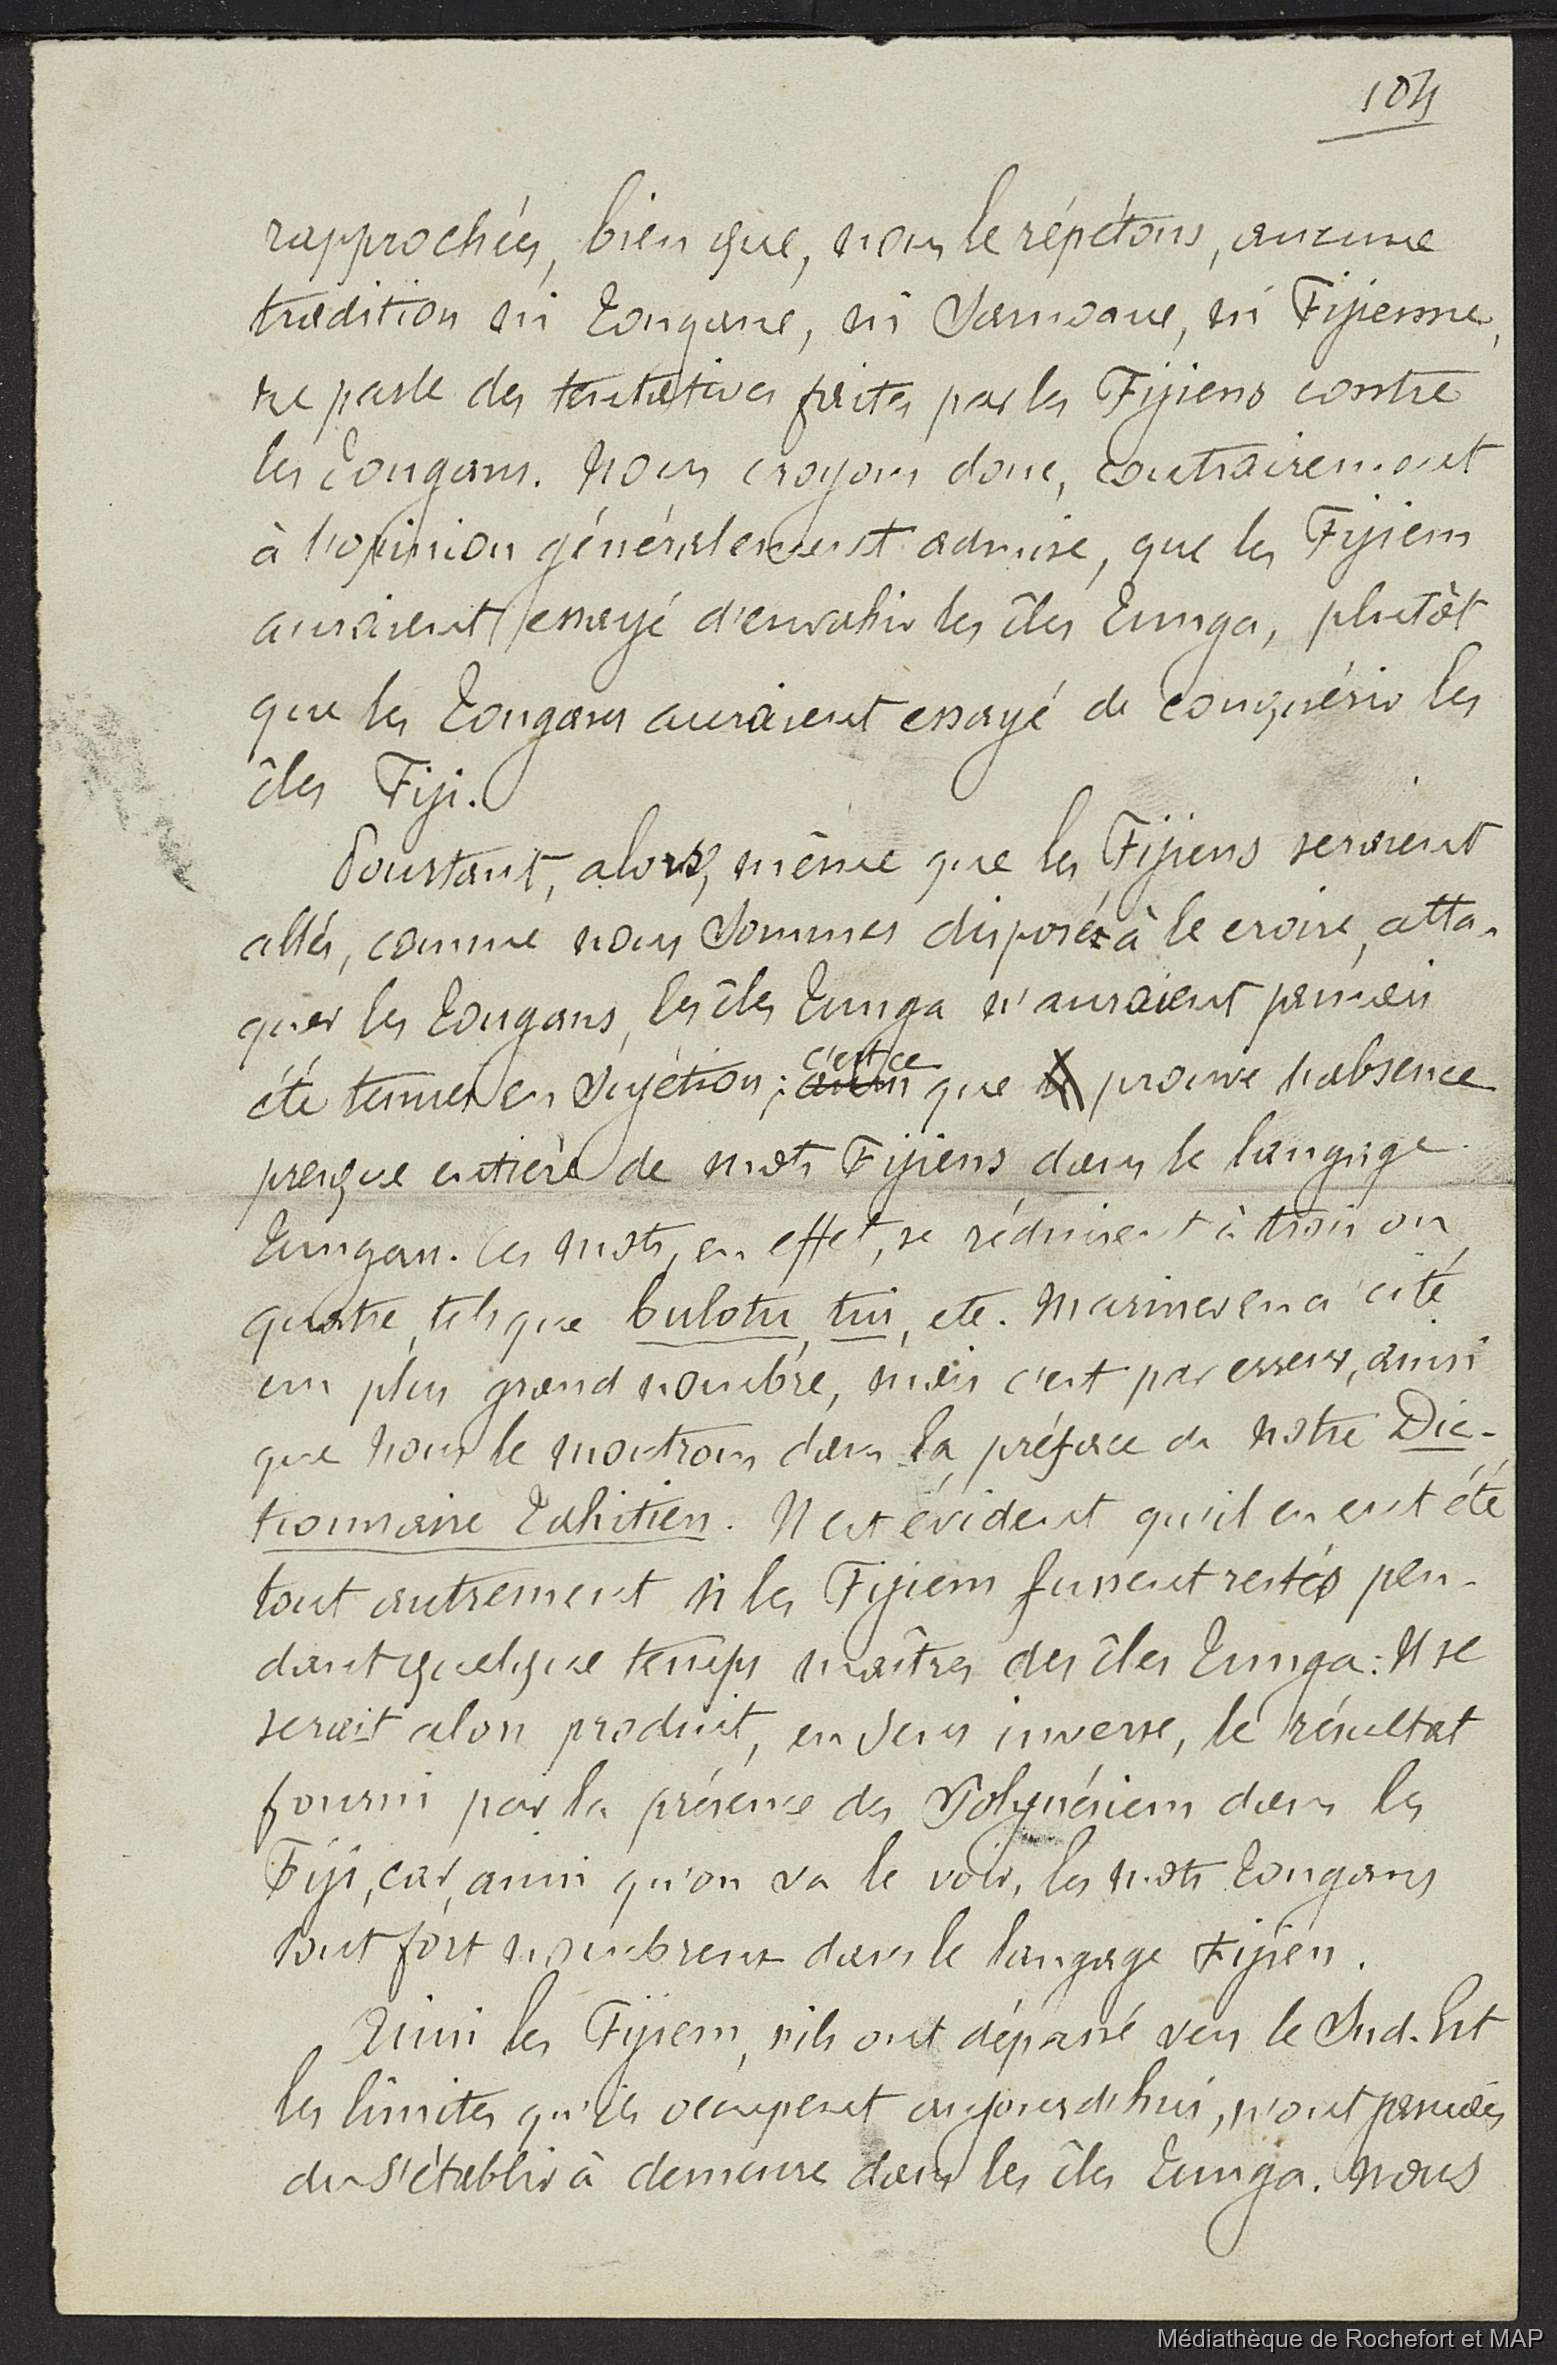 104
rapprochées, bien que, nous le répétons, aucune
tradition ni Tongane, ni Samoane, ni Fijienne,
ne parle des tentatives faites par les Fijiens contre
les Tongans. Nous croyons donc, contrairement
à l'opinion généralement admise, que les Fijiens
auraient essayé d'envahir les îles Tunga, plutôt
que les Tongans auraient essayé de conquérir les
îles Fiji.
Pourtant, alors, même que les Fijiens seraient
allés, comme nous sommes disposés à le croire, atta-
quer les Tongans, les îles Tunga n'auraient jamais
été tenues en sujétion; c'est ce que prouve l'absence
presque entière de mots Fijiens dans le langage
Tungan. Ces mots, en effet, se réduisent à trois ou
quatre, tels que bulotu, tui, etc. Mariner en a cité
un plus grand nombre, mais c'est par erreur, ainsi
que nous le montrons dans la préface de notre Dic-
tionnaire Tahitien. Il est évident qu'il en eut été
tout autrement si les Fijiens fussent restés pen-
dant quelque temps maîtres des îles Tunga: Il se
serait alors produit, en sens inverse, le résultat
fourni par la présence des Polynésiens dans les
Fiji, car, ainsi qu'on va le voir, les mots Tongans
sont fort nombreux dans le langage Fijien.
Ainsi les Fijiens, s'ils ont dépassé vers le Sud-Est
les limites qu'ils occupent aujourd'hui, n'ont jamais
du s'établir à demeure dans les îles Tunga. Nous
Médiathèque de Rochefort et MAP